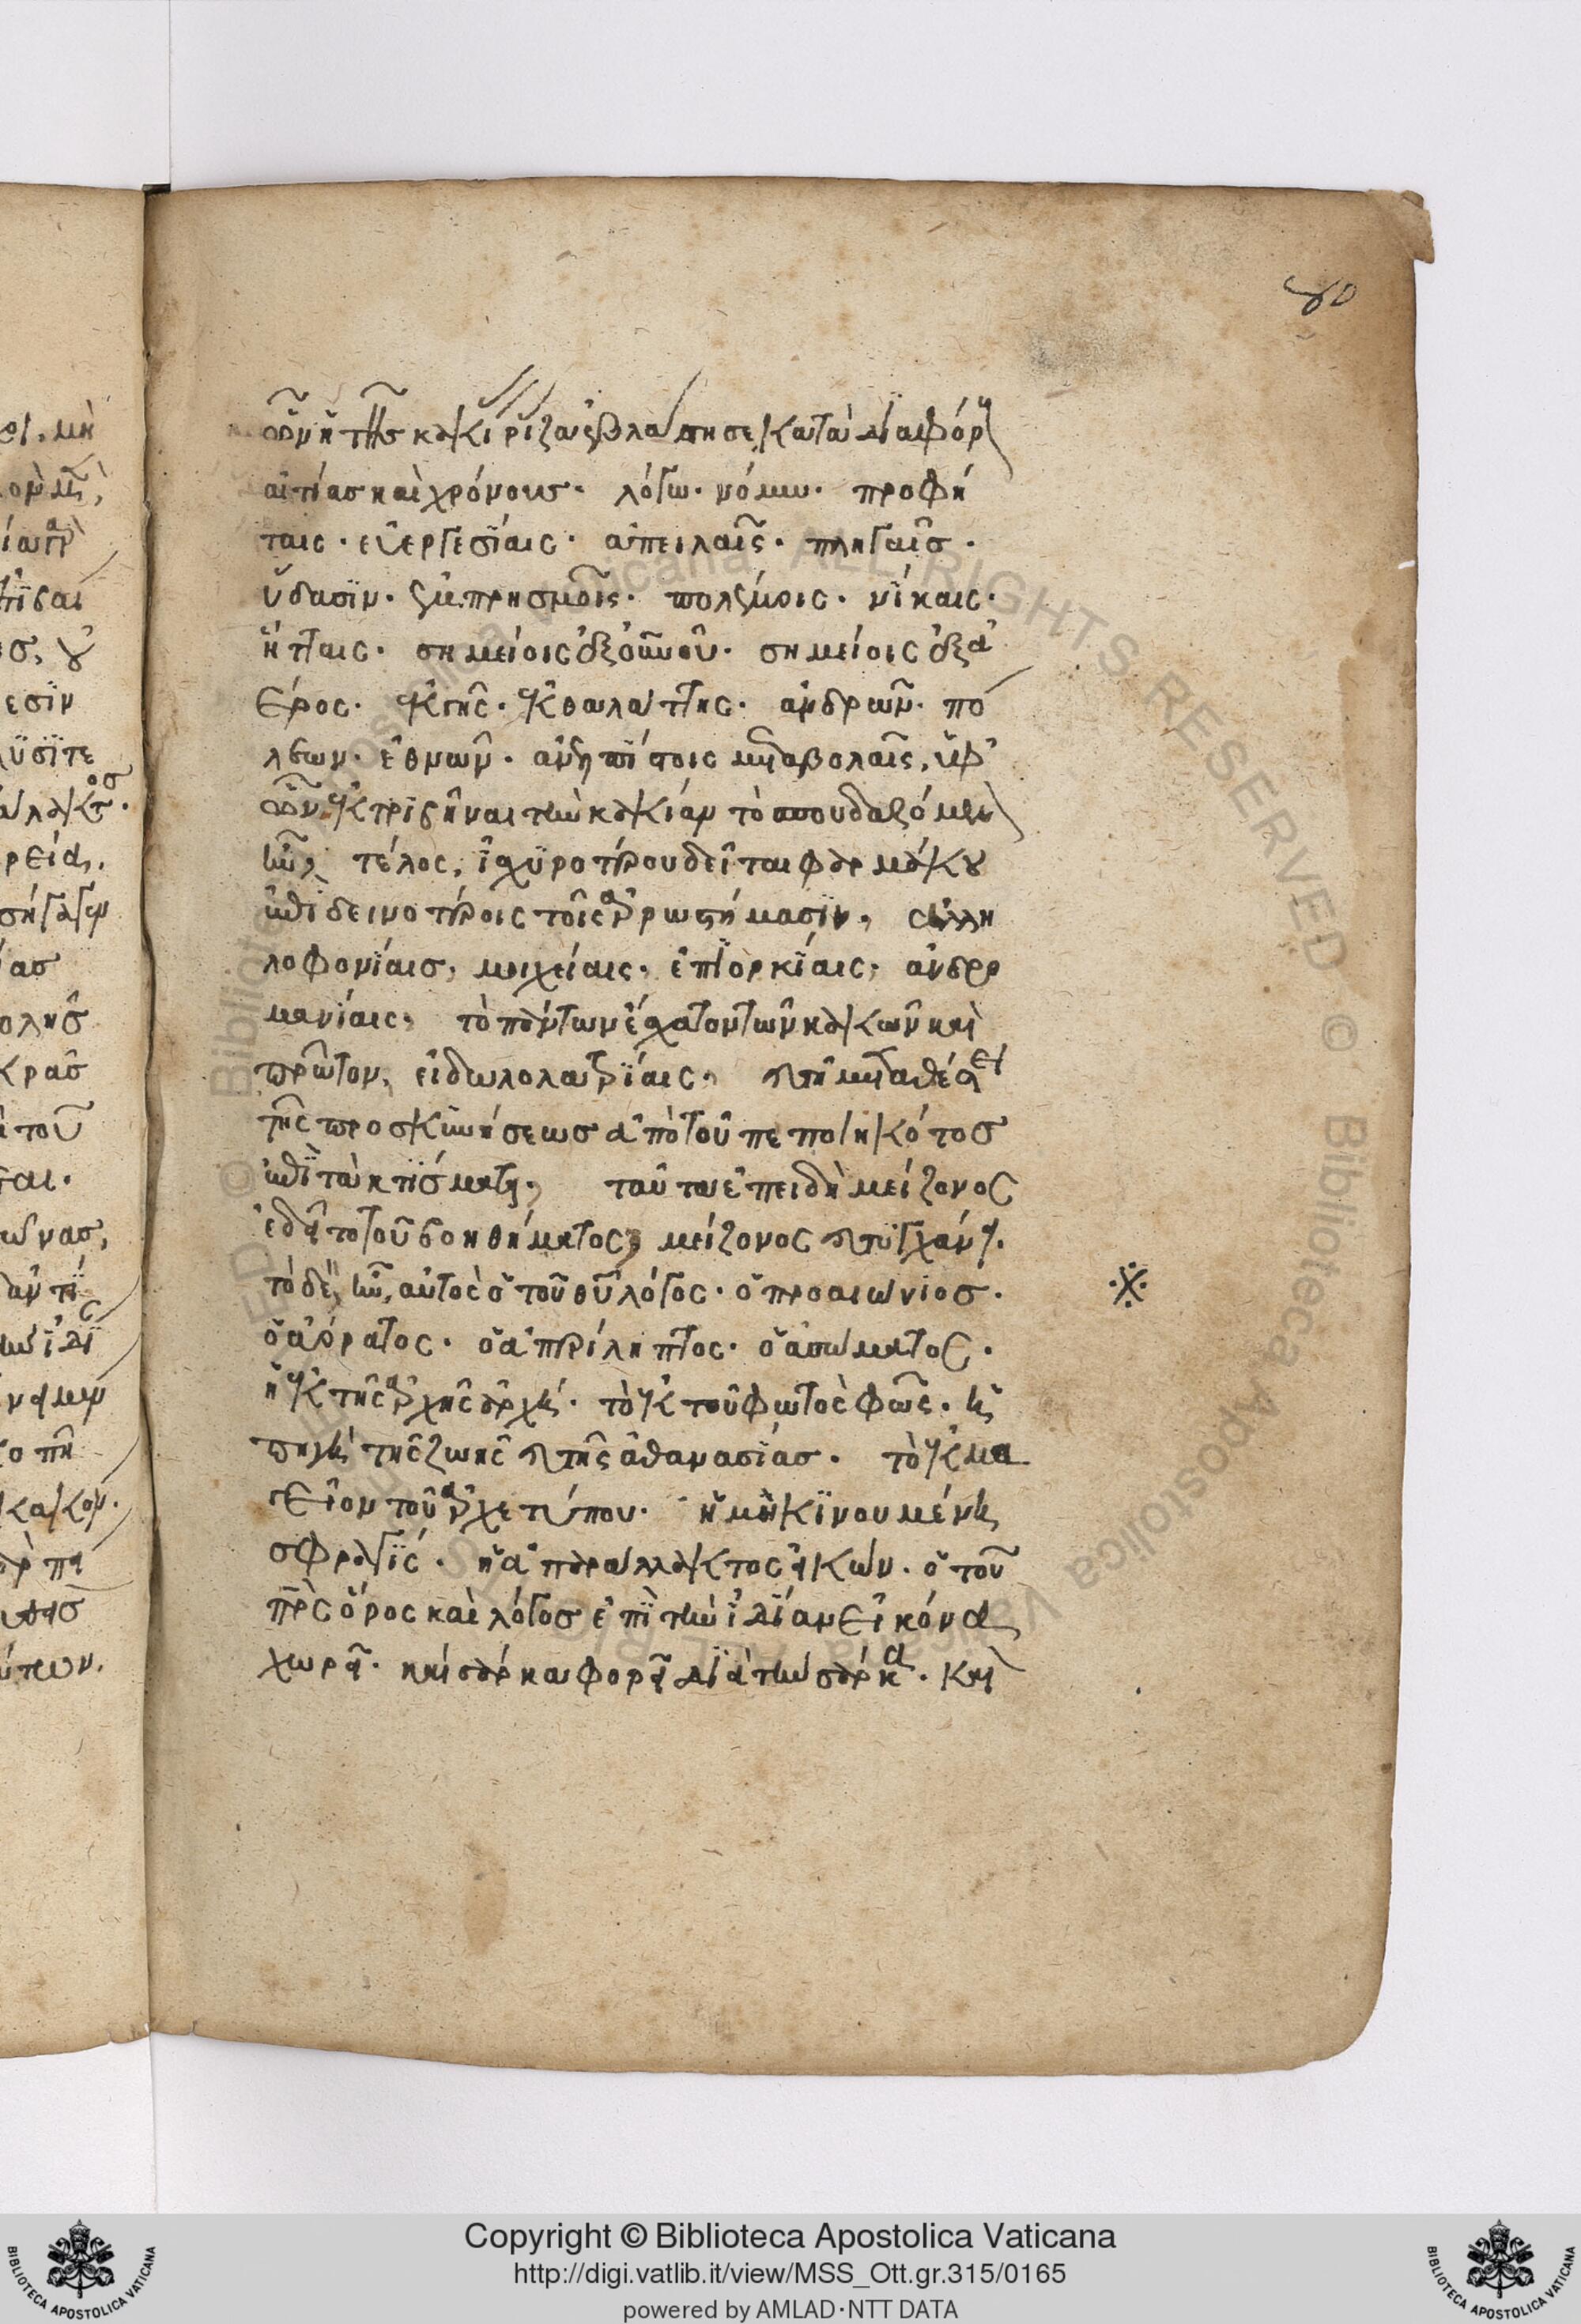 80
ὧν ἡ τῆς κακίας ῥίζα ἐβλάστησε, κατὰ διαφόρους
αἰτίας καὶ χρόνους· λόγω· νόμω· προφή
ταις· εὐεργεσίαις· ἀπειλαῖς· πληγαῖς·
ὕδασιν· ἐμπρησμοῖς· πολέμοις· νίκαις·
ἥτταις· σημείοις ἐξ οὐνοῦ· σημείοις ἐξ ἀ
έρος· ἐκ γῆς· ἐκ θαλάττης· ἀνδρῶν· πό
λεων· ἐθνῶν· ἀνελπίστοις μεταβολαῖς, ὑφ'
ὧν ἐκτριβῆναι τὴν κακίαν τὸ σπουδαζόμενον
ἦν, τέλος, ἰσχυροτέρου δεῖται φαρμάκου
ἐπὶ δεινοτέροις τοῖς ἀρρωστήμασιν, ἀλλη
λοφονίαις, μοιχείαις, ἐπιορκίαις, ἀνδρο
μανίαις, τὸ πάντων ἔσχατον τῶν κακῶν καὶ
πρῶτον, εἰδωλολατρίαις, καὶ τῆ μεταθέσει
τῆς προσκυνήσεως ἀπὸ τοῦ πεποιηκότος
ἐπὶ τὰ κτίσματα, ταῦτα ἐπειδὴ μείζονος
ἐδεῖτο τοῦ βοηθήματος, μείζονος καὶ τυγχάνει.
τὸ δὲ ἦν, αὐτὸς ὁ τοῦ θυ λόγος· ὁ προαιώνιος·
ὁ ἀόρατος· ὁ ἀπερίληπτος· ὁ ἀσώματος·
ἡ ἐκ τῆς ἀρχῆς ἀρχή· τὸ ἐκ τοῦ φωτὸς φῶς· ἡ
πηγὴ τῆς ζωῆς καὶ τῆς ἀθανασίας· τὸ ἐκμα
γεῖον τοῦ ἀρχετύπου· ἡ μὴ κινουμένη
σφραγίς· ἡ ἀπαράλλακτος εἰκών· ὁ τοῦ
πρς ὅρος καὶ λόγος ἐπὶ τὴν ἰδίαν εἰκόνα
χωρεῖ· καὶ σάρκα φορεῖ διὰ τὴν σάρκα· καὶ
Copyright © Biblioteca Apostolica Vaticana
http://digi.vatlib.it/view/MSS_Ott.gr.315/0165
powered by AMLAD·NTT DATA